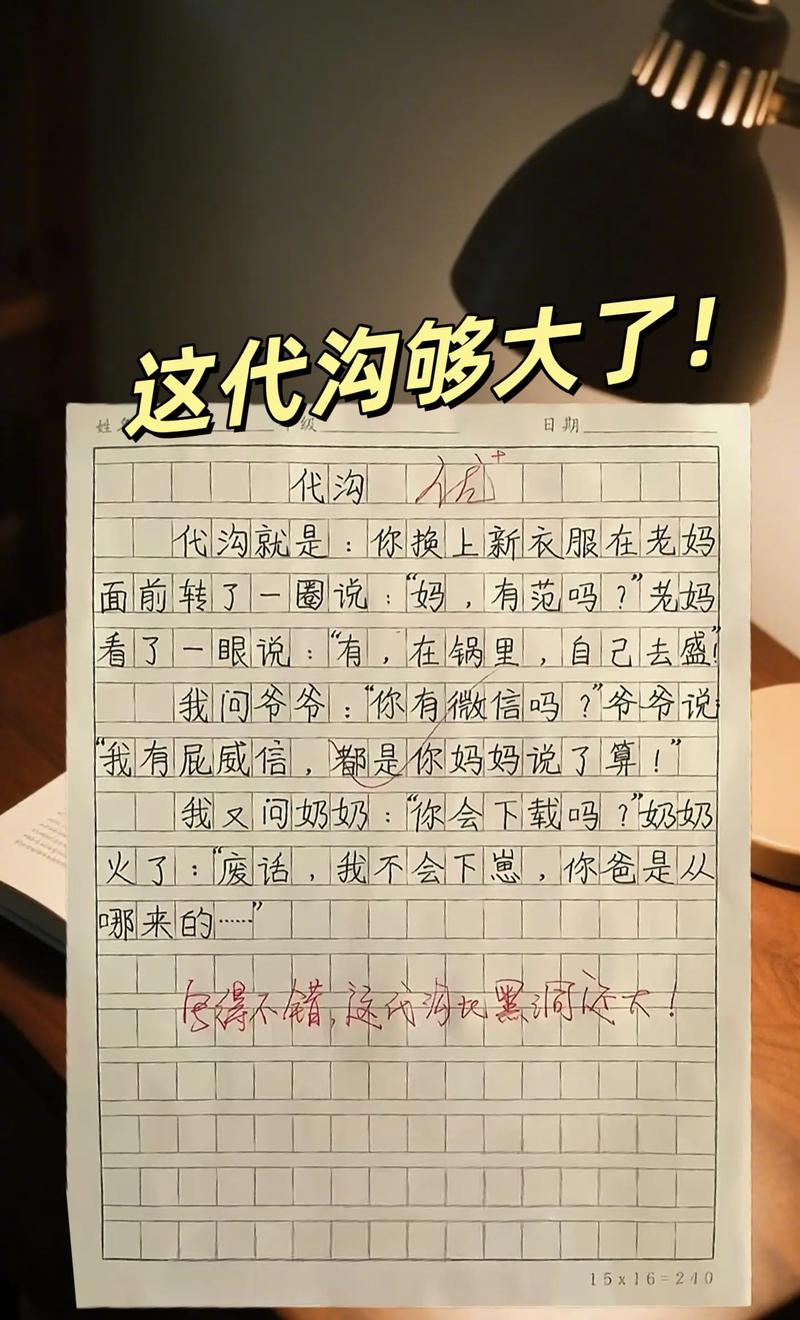 这代沟够大了!
姓名 级 日期
代沟 优+
代沟就是：你换上新衣服在老妈
面前转了一圈说：“妈，有范吗？”老妈
看了一眼说：“有，在锅里，自己去盛！”
我问爷爷：“你有微信吗？”爷爷说：
“我有屁威信，都是你妈妈说了算！”
我又问奶奶：“你会下载吗？”奶奶
火了：“废话，我不会下崽，你爸是从
哪来的……”
写得不错，这代沟比黑洞还大！
15x16=240